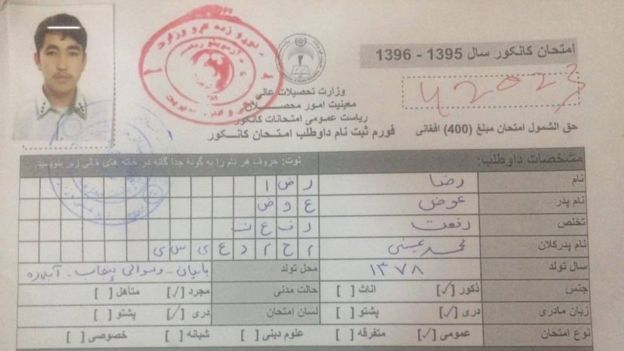 امتحان کانکور سال 1395 - 1396
42023
حق الشمول امتحان مبلغ (400) افغانی
وزارت تحصیلات عالی
معینیت امور محصلان
ریاست عمومی امتحانات کانکور
فورم ثبت نام داوطلب امتحان کانکور
مشخصات داوطلب: نوت: حروف هر نام را به گونه جدا گانه در خانه های خالی زیر بنویسید
نام رضا ر ض ا
نام پدر عوض ع و ض
تخلص رفعت ر ف ع ت
نام پدرکلان محمد عیسی م ح م د ع ی س ی
سال تولد ۱۳۷۸ محل تولد بامیان - ولسوالی پنجاب -
جنس ذکور [✓] اناث [ ] حالت مدنی مجرد [✓] متاهل [ ]
زبان مادری دری [✓] پشتو [ ] لسان امتحان دری [✓] پشتو [ ]
نوع امتحان عمومی [✓] متفرقه [ ] علوم دینی [ ] شبانه [ ] خصوصی [ ]